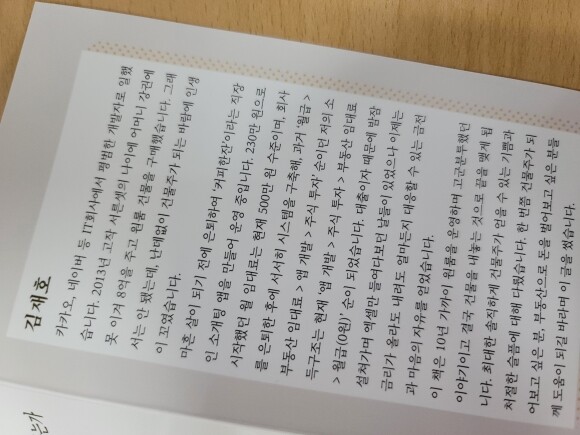 김재호
카카오, 네이버 등 IT회사에서 평범한 개발자로 일했
습니다. 2013년 고작 서른셋의 나이에 어머니 강권에
못 이겨 8억을 주고 원룸 건물을 구매했습니다. 그래
서는 안 됐는데, 난데없이 건물주가 되는 바람에 인생
이 꼬였습니다.
마흔 살이 되기 전에 은퇴하여 '커피한잔'이라는 직장
인 소개팅 앱을 만들어 운영 중입니다. 230만 원으로
시작했던 월 임대료는 현재 500만 원 수준이며, 회사
를 은퇴한 후에 서서히 시스템을 구축해, 과거 '월급 >
부동산 임대료 > 앱 개발 > 주식 투자' 순이던 저의 소
득구조는 현재 '앱 개발 > 주식 투자 > 부동산 임대료
> 월급(0원)' 순이 되었습니다. 대출이자 때문에 밤잠
설쳐가며 엑셀만 들여다보던 날들이 있었으나 이제는
금리가 올라도 내려도 얼마든지 대응할 수 있는 금전
과 마음의 자유를 얻었습니다.
이 책은 10년 가까이 원룸을 운영하며 고군분투했던
이야기이고 결국 건물을 내놓는 것으로 끝을 맺게 됩
니다. 최대한 솔직하게 건물주가 얻을 수 있는 기쁨과
처절한 슬픔에 대해 다뤘습니다. 한 번쯤 건물주가 되
어보고 싶은 분, 부동산으로 돈을 벌어보고 싶은 분들
께 도움이 되길 바라며 이 글을 썼습니다.
는가